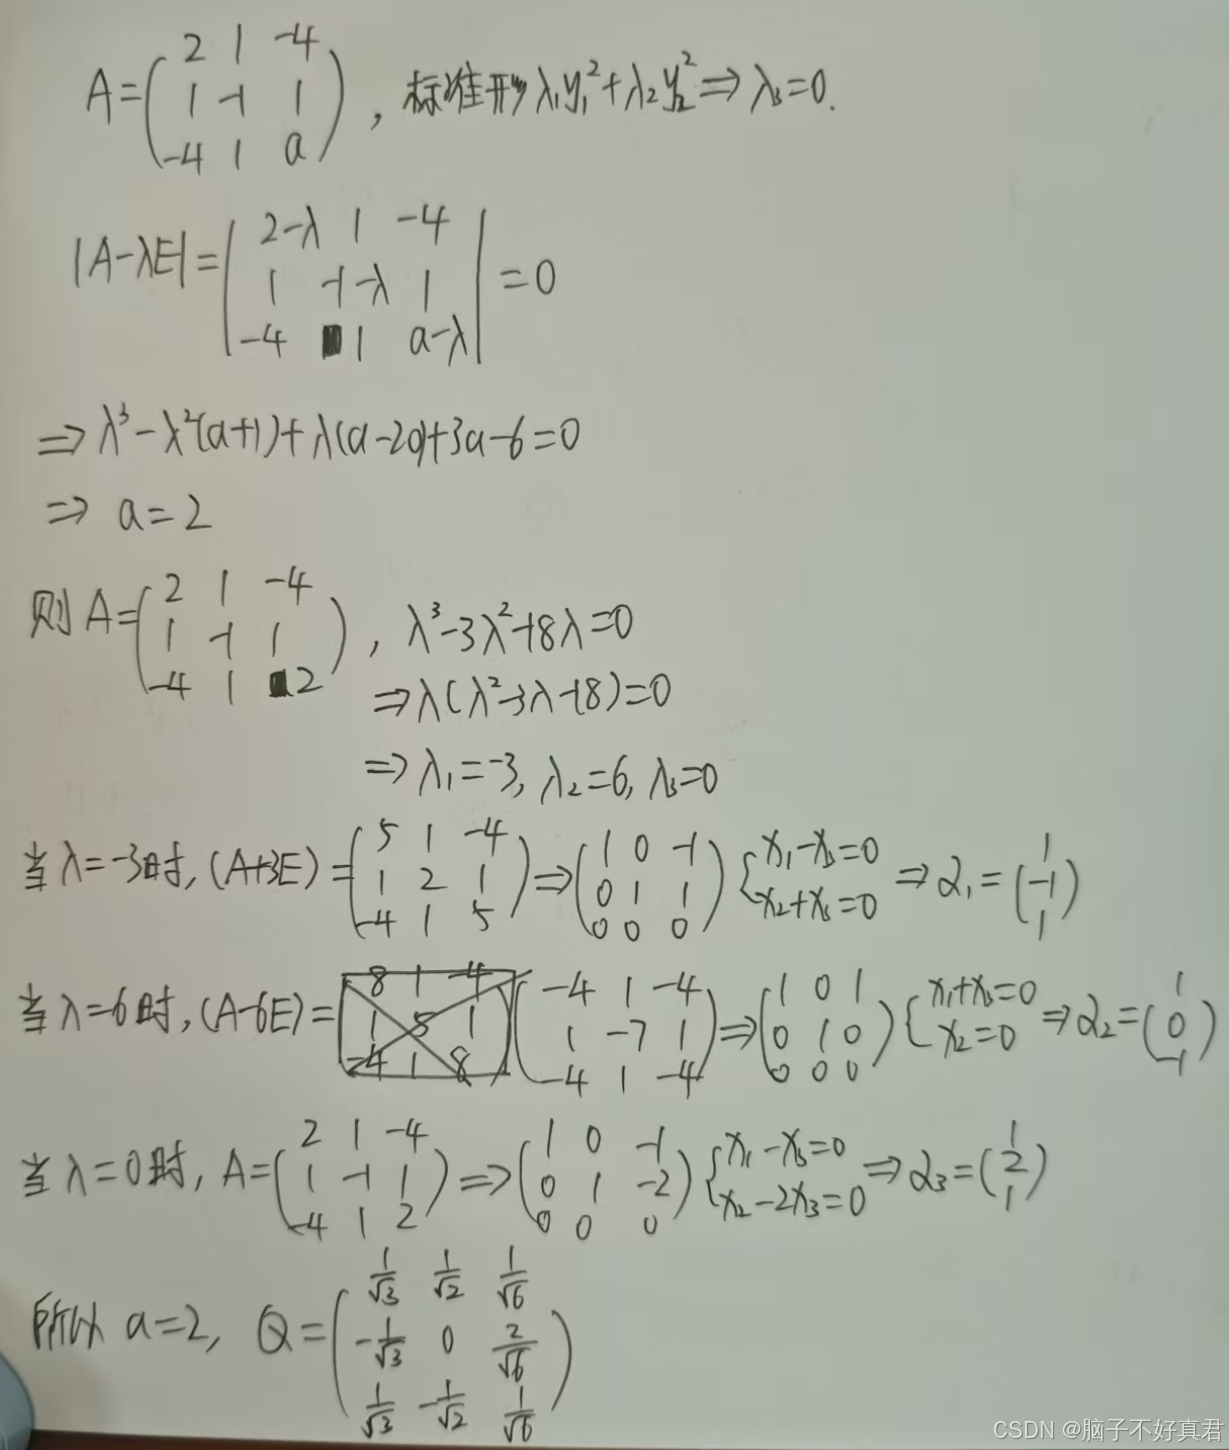 A=(2 1 -4
1 -1 1
-4 1 a), 标准形λ₁y₁²+λ₂y₂²⇒λ₃=0.
|A-λE|=|2-λ 1 -4
1 -1-λ 1
-4 1 a-λ|=0
⇒λ³-λ²(a+1)+λ(a-20)+3a-6=0
⇒ a=2
则A=(2 1 -4
1 -1 1
-4 1 2), λ³-3λ²-18λ=0
⇒λ(λ²-3λ-18)=0
⇒λ₁=-3, λ₂=6, λ₃=0
当λ=-3时, (A+3E)=(5 1 -4
1 2 1
-4 1 5)⇒(1 0 -1
0 1 1
0 0 0) {x₁-x₃=0
x₂+x₃=0 ⇒α₁=(1
-1
1)
当λ=6时, (A-6E)=(8 1 -4
1 5 1
-4 1 8) (-4 1 -4
1 -7 1
-4 1 -4)⇒(1 0 1
0 1 0
0 0 0) {x₁+x₃=0
x₂=0 ⇒α₂=(1
0
-1)
当λ=0时, A=(2 1 -4
1 -1 1
-4 1 2)⇒(1 0 -1
0 1 -2
0 0 0) {x₁-x₃=0
x₂-2x₃=0 ⇒α₃=(1
2
1)
所以 a=2, Q=(1/√3 1/√2 1/√6
-1/√3 0 2/√6
1/√3 -1/√2 1/√6)
CSDN @脑子不好真君